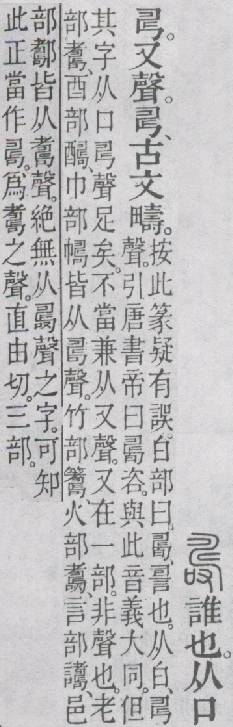 誰也。从口
𢏚。又聲。𢏚、古文疇。
按此篆疑有誤。白部曰。𠷎、䛐也。从白、𢏚
聲。引唐書帝曰𠷎咨。與此音義大同。但
其字从口𢏚聲足矣。不當兼从又聲。又在一部。非聲也。老
部𦓃、酉部醻、巾部幬皆从𠷎聲。竹部籌、火部燾、言部譸、邑
部𨞪皆从𦓃聲。絕無从𠷎聲之字。可知
此正當作𠷎。爲𦓃之聲。直由切。三部。